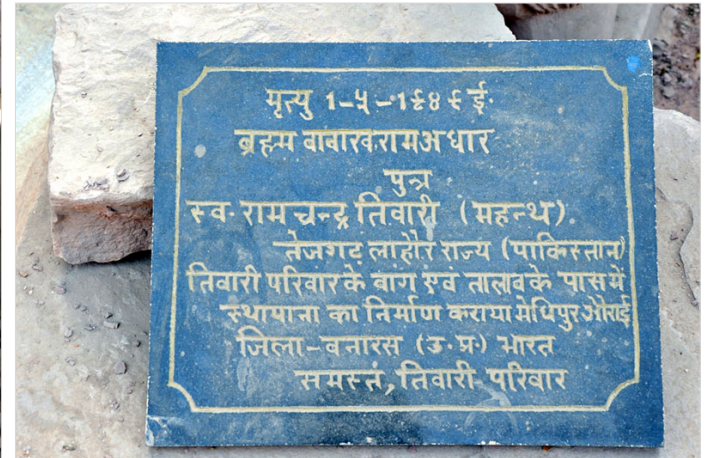 मृत्यु 1-५-1९४६ ई.
ब्रहम बाबा स्व. राम अधार
पुत्र
स्व. राम चन्द्र तिवारी (महन्थ).
तेजगढ़ लाहौर राज्य (पाकिस्तान)
तिवारी परिवार के बाग एवं तालाव के पास में
स्थापाना का निर्माण कराया मेधिपुर औराई
जिला-बनारस (उ.प्र.) भारत
समस्त, तिवारी परिवार